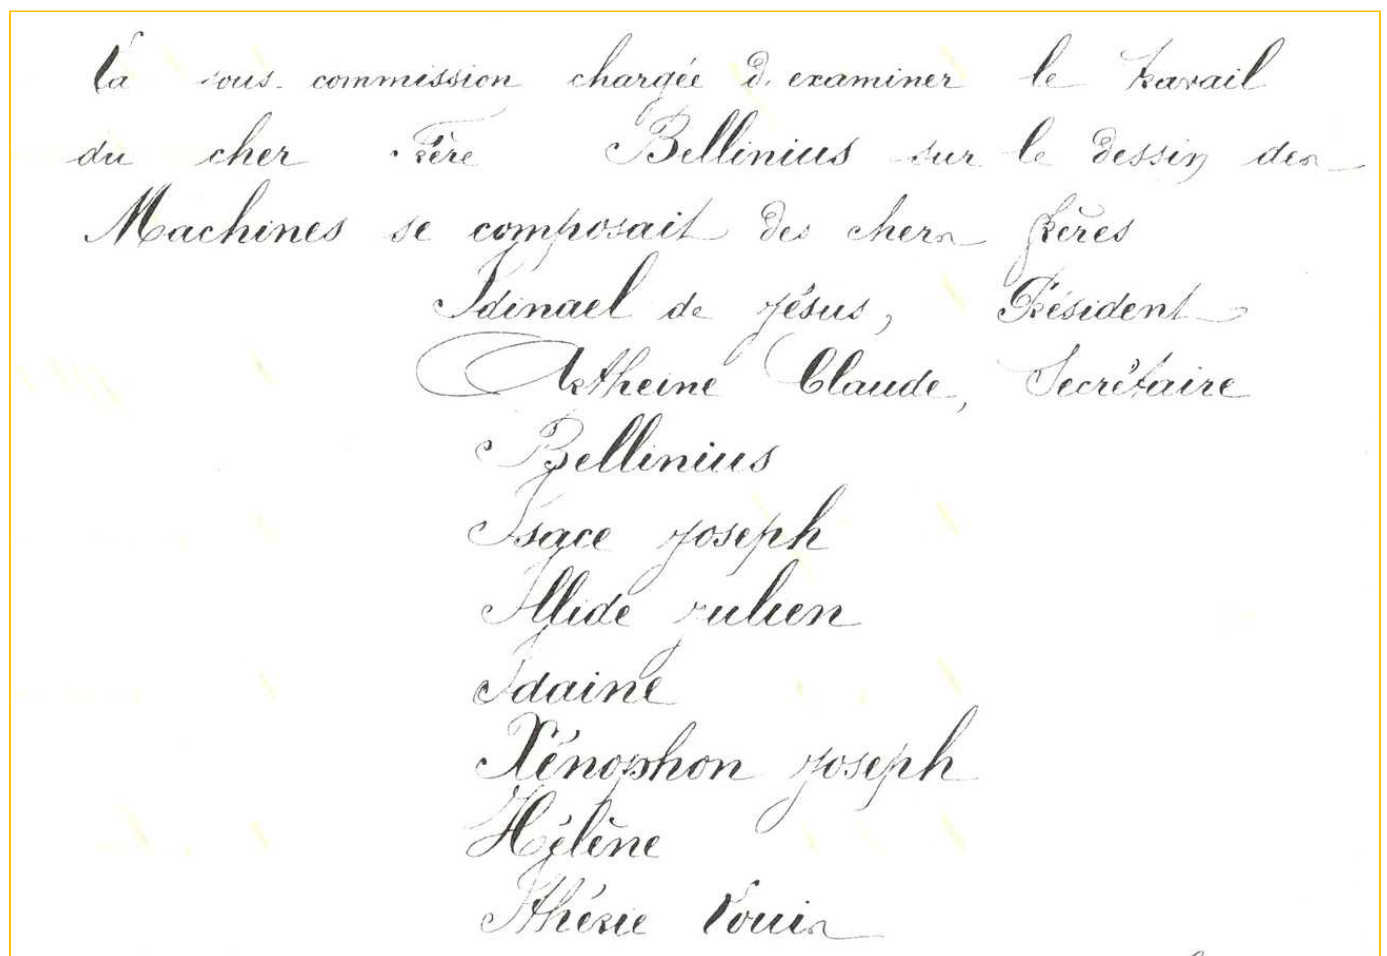 La sous-commission chargée d'examiner le travail
du cher Frère Bellinius sur le dessin des
Machines se composait des chers frères
Idinael de Jésus, Président
Artheine Claude, Secrétaire
Bellinius
Isace Joseph
Illide Julien
Idaine
Xénophon Joseph
Hélène
Ithérie Louis